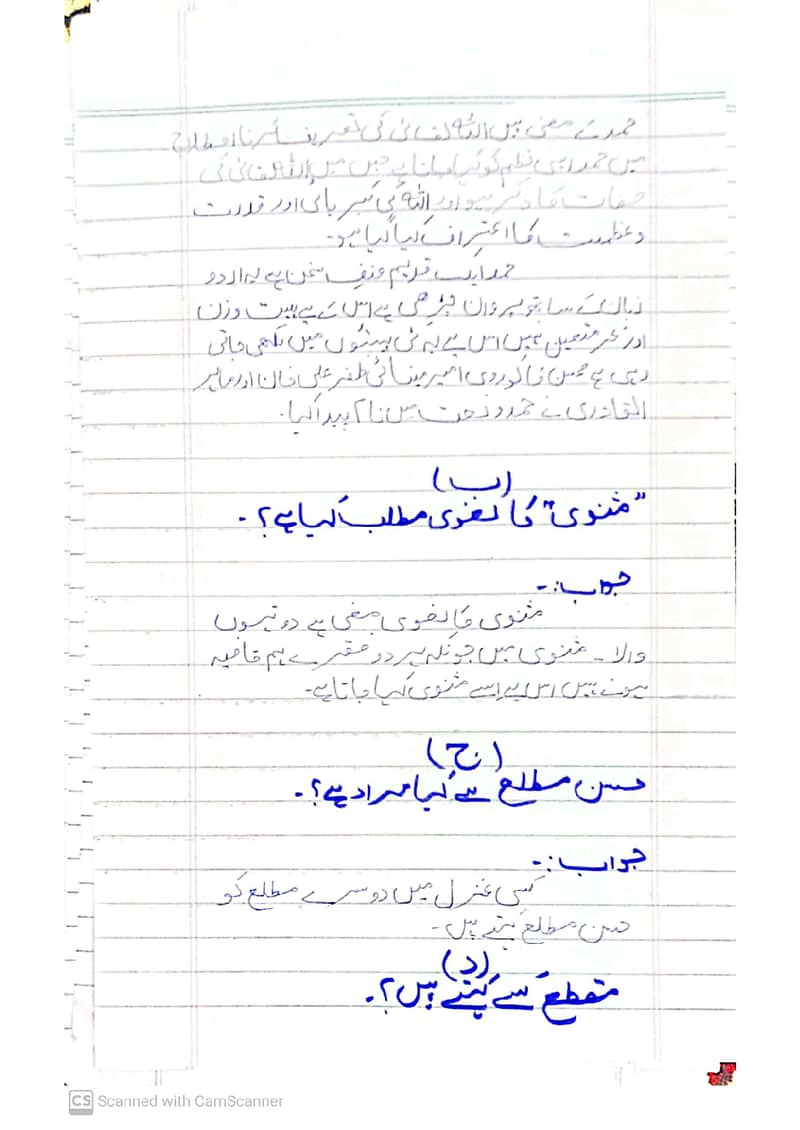 حمد کے معنی ہیں اللہ تعالیٰ کی تعریف کرنا اصطلاح
میں حمد ایسی نظم کو کہا جاتا ہے جس میں اللہ تعالیٰ کی
صفات کا ذکر ہو اور اللہ کی کبریائی اور قدرت
و عظمت کا اعتراف کیا گیا ہو۔
حمد ایک قدیم صنفِ سخن ہے یہ اردو
زبان کے ساتھ پروان چڑھی ہے اس کے ہیت وزن
اور بحر متعین نہیں اس لیے یہ کئی ہیئتوں میں لکھی جاتی
رہی ہے محسن کاکوروی امیر مینائی ظفر علی خان اور ماہر
القادری نے حمد و نعت میں نام پیدا کیا۔
(ب)
"مثنوی" کا لغوی مطلب کیا ہے؟۔
جواب:۔
مثنوی کا لغوی معنی ہے دو
والا ۔ مثنوی میں چونکہ ہر دو مصرے ہم قافیہ
ہوتے ہیں اس لیے اسے مثنوی کہا جاتا ہے۔
(ج)
حسن مطلع سے کیا مراد ہے؟۔
جواب:۔
کسی غزل میں دوسرے مطلع کو
حسن مطلع کہتے ہیں۔
(د)
مقطع سے کہتے ہیں؟۔
CS Scanned with CamScanner